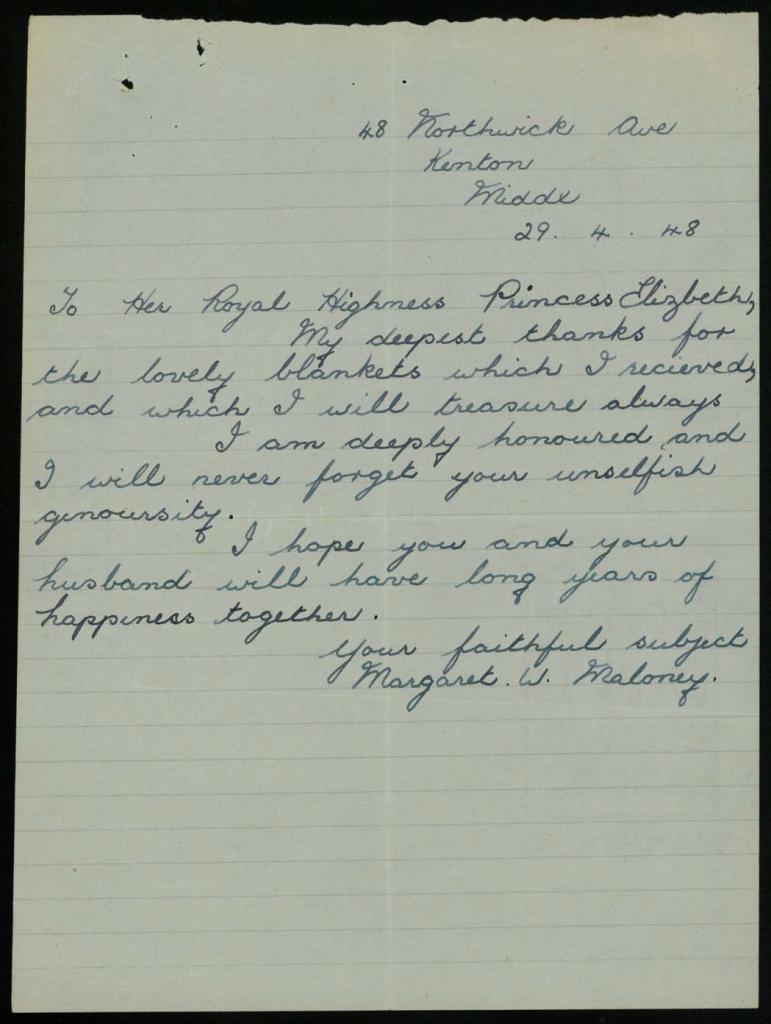 48 Northwick Ave
Kenton
Middx
29. 4. 48
To Her Royal Highness Princess Elizbeth,
My deepest thanks for
the lovely blankets which I recieved,
and which I will treasure always
I am deeply honoured and
I will never forget your unselfish
genoursity.
I hope you and your
husband will have long years of
happiness together.
Your faithful subject
Margaret. W. Maloney.